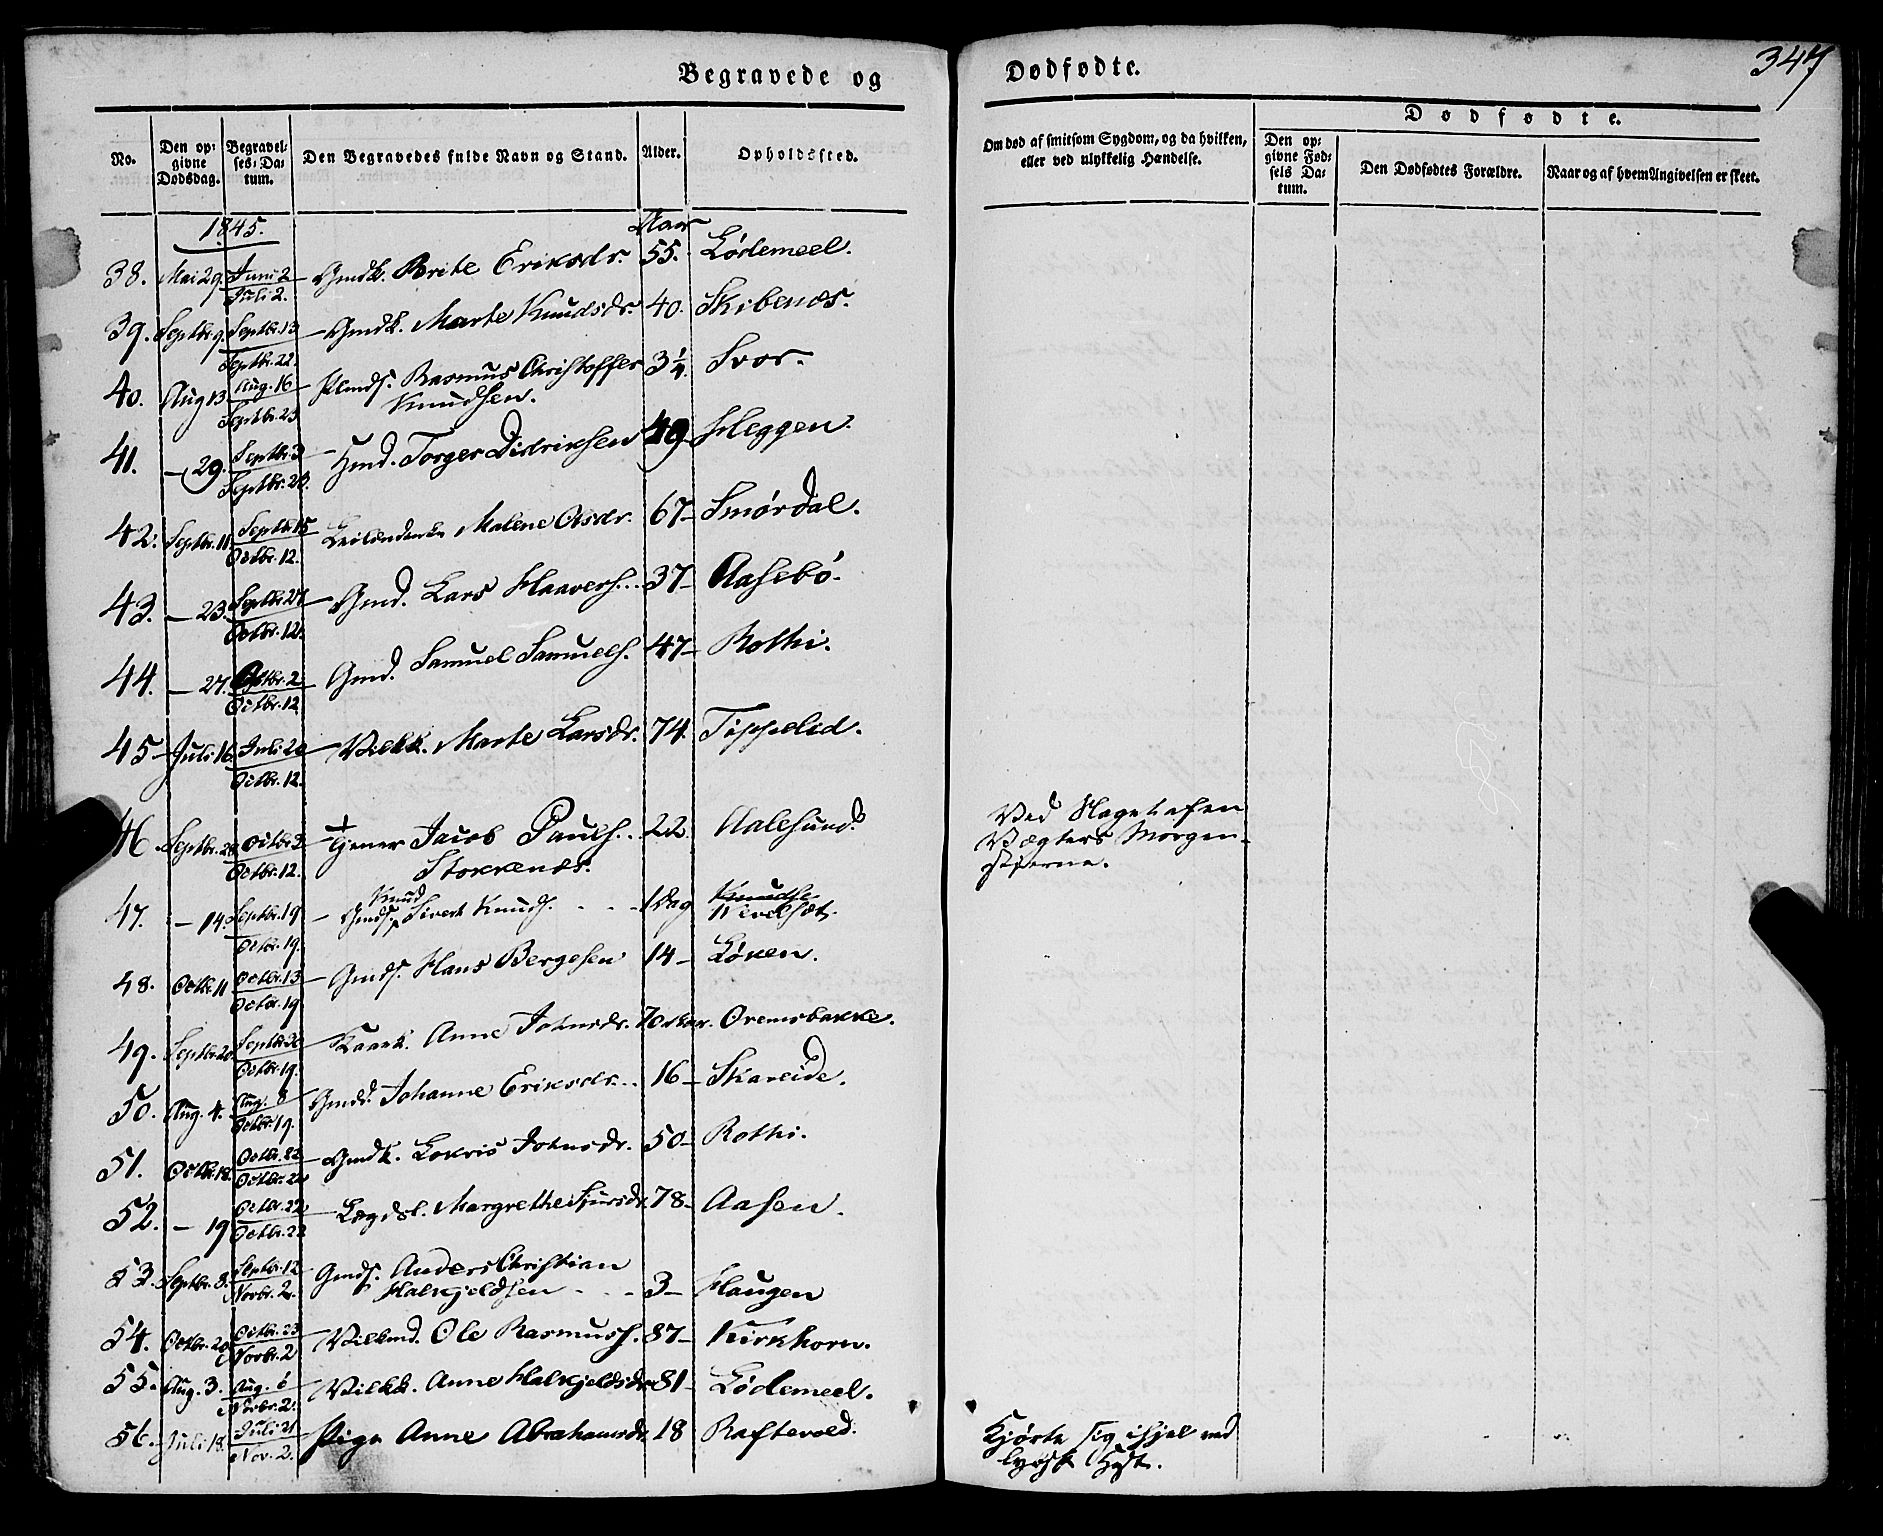 Begravede og Dødfødte. 347
No. Den opgivne Dødsdag. Begravelses-Datum. Den Begravedes fulde Navn og Stand. Alder. Opholdssted. Om død af smitsom Sygdom, og da hvilken, eller ved ulykkelig Hændelse. Dødfødte. Den opgivne Fødsels Datum. Den Dødfødtes Forældre. Naar og af hvem Angivelsen er skeet.
1845. Aar
38. Mai 29. Juni 2 Juli 2. Gmdk. Brite Eriksdr. 55. Lødemeel.
39. Septbr. 9. Septbr. 13 Septbr. 22. Gmdk. Marte Knudsdr. 40. Skibenæs.
40. Aug 13. Aug. 16 Septbr. 23 Rasmus Christoffer Knudsen. 3 1/4 Svor.
41. — 29. Septbr. 3 Septbr. 28. Hmd. Torger Didriksen 49 Heggen.
42. Septbr. 11. Septbr. 15 Octbr. 12. Malene Olsdr. 67 — Smørdal.
43. — 23. Septbr. 27 Octbr. 12. Gmd. Lars Haavers. 37 — Aasebø.
44. — 27. Octbr. 2 Octbr. 12 Gmd. Samuel Samuels. 47 — Rothi.
45 Juli 16. Juli 20 Octbr. 12. Vilkk. Marte Larsdr. 74. Tippelid.
46. Septbr. 28. Octbr. 3 Octbr. 12. Tjener Jacob Pauls. Storkenæs. 22. Aalesund. Ved Vægters Morgenstjerne.
47. — 14. Septbr. 19 Octbr. 19. Gmds. Knud Sivert Knuds. 1 Dag
48. Octbr. 11 Octbr. 13 Octbr. 19. Gmds. Hans Bergesen 14 — Løken.
49. Septbr. 20. Septbr. 30 Octbr. 19. Kaark. Anne Johnsdr. 70 Aar. Oremsbakke.
50. Aug. 4. Aug. 8 Octbr. 19. Gmdd. Johanne Eriksdr. 16 — Skareide.
51. Octbr. 18. Octbr. 22 Octbr. 22 Gmdk. Lokris Johnsdr. 50 — Rothi.
52. — 19 Octbr. 22 Octbr. 22 Lægdsl. Margrethe Siursdr. 78 — Aasen.
53. Septbr. 8. Septbr. 12 Novbr. 2. Gmds. Anders Christian Halkjeldsen 3 — Haugen
54. Octbr. 20 Octbr. 23 Novbr. 2 Vilkmd. Ole Rasmuss. 87 — Kirkhorn.
55. Aug. 3. Aug. 6 Novbr. 2. Vilkk. Anne Halkjeldsdr. 81 — Lødemeel.
56. Juli 18. Juli 21 Nov. 2. Pige Anne Abrahamsdr. 18 Raftevold. Kjørte sig ihjel med løbsk Hest.